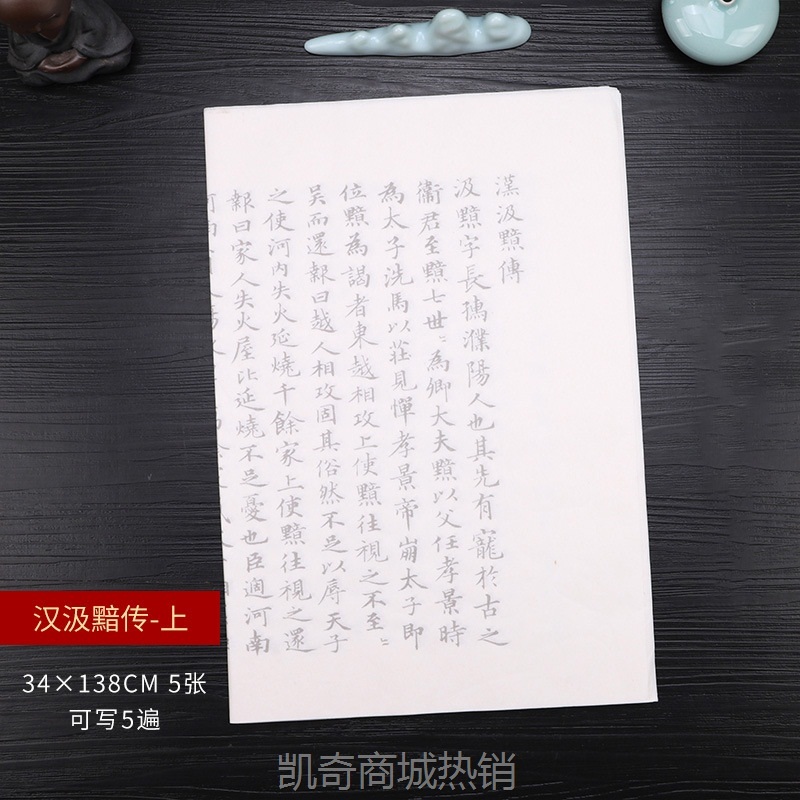 漢汲黯傳
汲黯字長孺濮陽人也其先有寵於古之
衞君至黯七世〻為卿大夫黯以父任孝景時
為太子洗馬以莊見憚孝景帝崩太子即
位黯為謁者東越相攻上使黯往視之不至〻
吳而還報曰越人相攻固其俗然不足以辱天子
之使河内失火延燒千餘家上使黯往視之還
報曰家人失火屋比延燒不足憂也臣適河南
汉汲黯传-上
34×138CM 5张
可写5遍
凯奇商城热销